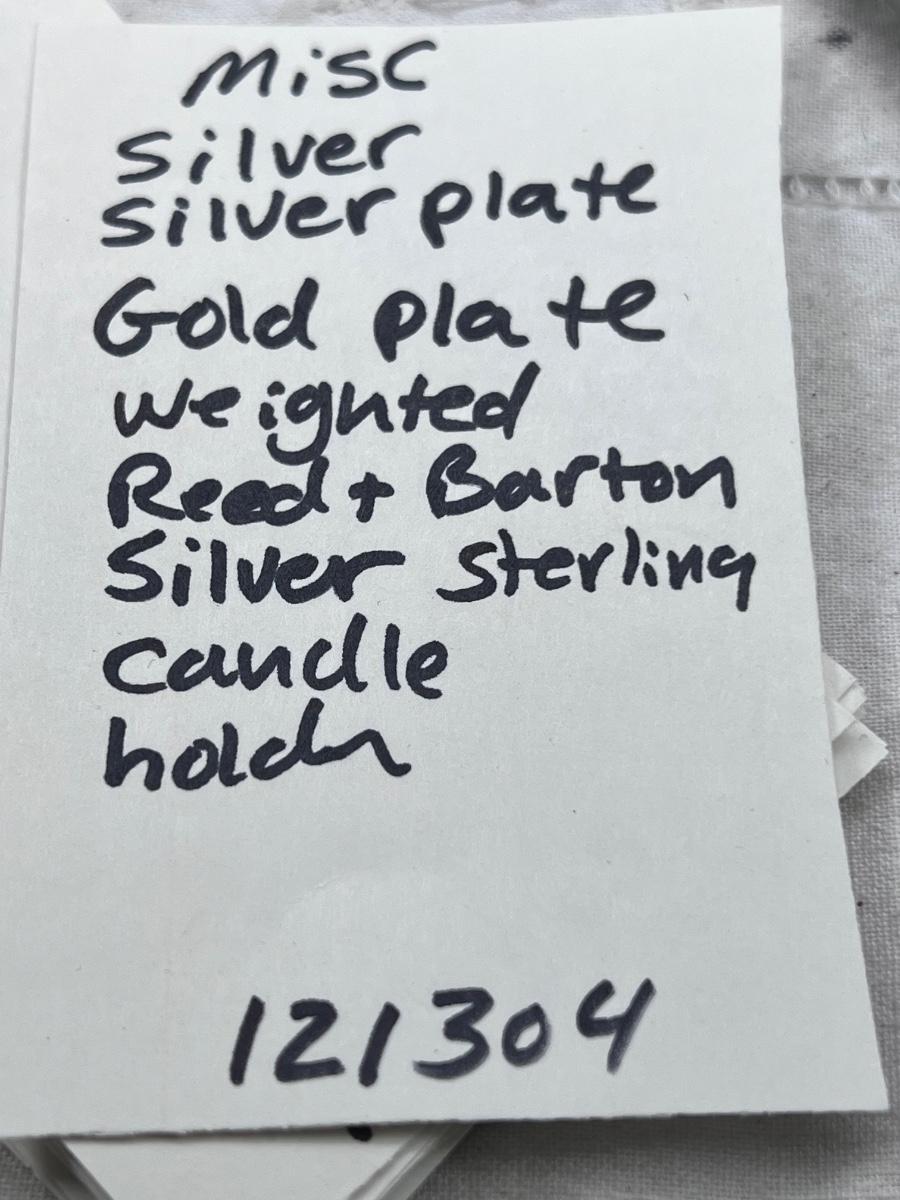 Misc
Silver
Silver plate
Gold plate
Weighted
Reed + Barton
Silver sterling
Candle
holdr
121304